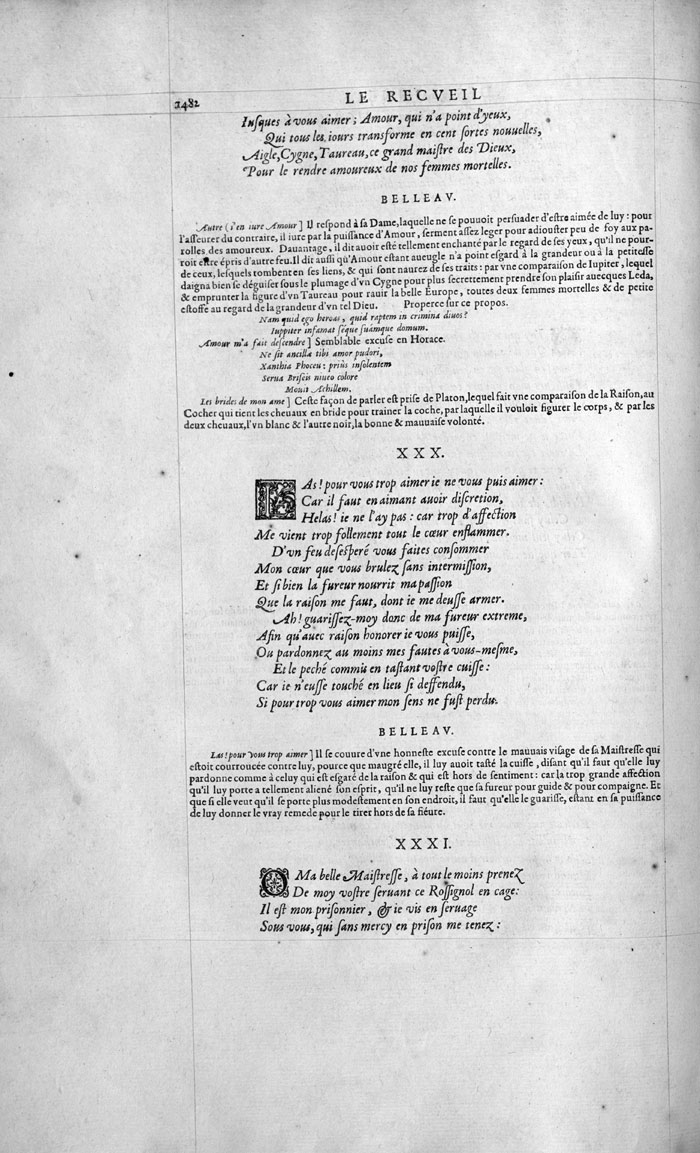 1482
LE RECVEIL
Iusques à vous aimer; Amour, qui n'a point d'yeux,
Qui tous les iours transforme en cent sortes nouuelles,
Aigle, Cygne, Taureau, ce grand maistre des Dieux,
Pour le rendre amoureux de nos femmes mortelles.
BELLEAV.
Autre (i'en iure Amour] Il respond à sa Dame, laquelle ne se pouuoit persuader d'estre aimée de luy : pour
l'asseurer du contraire, il iure par la puissance d'Amour, serment assez leger pour adiouster peu de foy aux pa-
rolles des amoureux. Dauantage, il dit auoir esté tellement enchanté par le regard de ses yeux, qu'il ne pour-
roit estre épris d'autre feu. Il dit aussi qu'Amour estant aueugle n'a point esgard à la grandeur ou à la petitesse
de ceux, lesquels tombent en ses liens, & qui sont naurez de ses traits : par vne comparaison de Iupiter, lequel
daigna bien se déguiser sous le plumage d'vn Cygne pour plus secrettement prendre son plaisir auecques Leda,
& emprunter la figure d'vn Taureau pour rauir la belle Europe, toutes deux femmes mortelles & de petite
estoffe au regard de la grandeur d'vn tel Dieu. Properce sur ce propos.
Nam quid ego heroas, quid raptem in crimina diuos?
Iuppiter infamat séque suámque domum.
Amour m'a fait descendre] Semblable excuse en Horace.
Ne sit ancillæ tibi amor pudori,
Xanthia Phoceu : priùs insolentem
Serua Briseis niueo colore
Mouit Achillem.
Les brides de mon ame] Ceste façon de parler est prise de Platon, lequel fait vne comparaison de la Raison, au
Cocher qui tient les cheuaux en bride pour trainer la coche, par laquelle il vouloit figurer le corps, & par les
deux cheuaux, l'vn blanc & l'autre noir, la bonne & mauuaise volonté.
XXX.
LAs! pour vous trop aimer ie ne vous puis aimer :
Car il faut en aimant auoir discretion,
Helas! ie ne l'ay pas : car trop d'affection
Me vient trop follement tout le cœur enflammer.
D'vn feu desesperé vous faites consommer
Mon cœur que vous brulez sans intermission,
Et si bien la fureur nourrit ma passion
Que la raison me faut, dont ie me deusse armer.
Ah! guarissez-moy donc de ma fureur extreme,
Afin qu'auec raison honorer ie vous puisse,
Ou pardonnez au moins mes fautes à vous-mesme,
Et le peché commis en tastant vostre cuisse :
Car ie n'eusse touché en lieu si deffendu,
Si pour trop vous aimer mon sens ne fust perdu.
BELLEAV.
Las! pour vous trop aimer] Il se couure d'vne honneste excuse contre le mauuais visage de sa Maistresse qui
estoit courroucée contre luy, pource que maugré elle, il luy auoit tasté la cuisse, disant qu'il faut qu'elle luy
pardonne comme à celuy qui est esgaré de la raison & qui est hors de sentiment : car la trop grande affection
qu'il luy porte a tellement aliené son esprit, qu'il ne luy reste que sa fureur pour guide & pour compaigne. Et
que si elle veut qu'il se porte plus modestement en son endroit, il faut qu'elle le guarisse, estant en sa puissance
de luy donner le vray remede pour le tirer hors de sa fiéure.
XXXI.
O Ma belle Maistresse, à tout le moins prenez
De moy vostre seruant ce Rossignol en cage:
Il est mon prisonnier, & ie vis en seruage
Sous vous, qui sans mercy en prison me tenez :